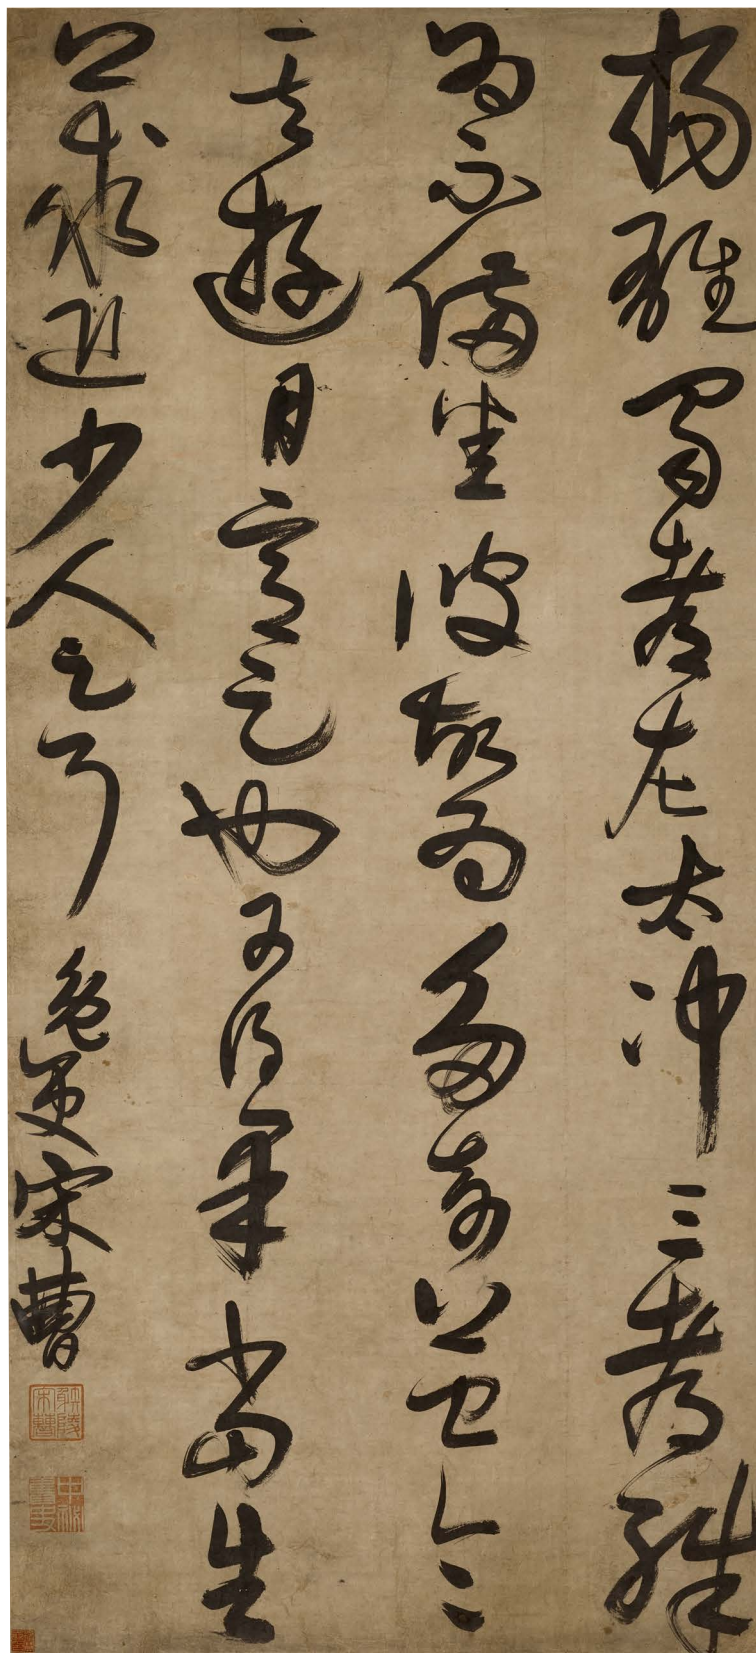 楊雄蜀都左太沖三都殊
為不備悉彼故為多奇益令
其遊目意足也可得果當告
卿求迎少人足耳 宋曹
射陵宋曹